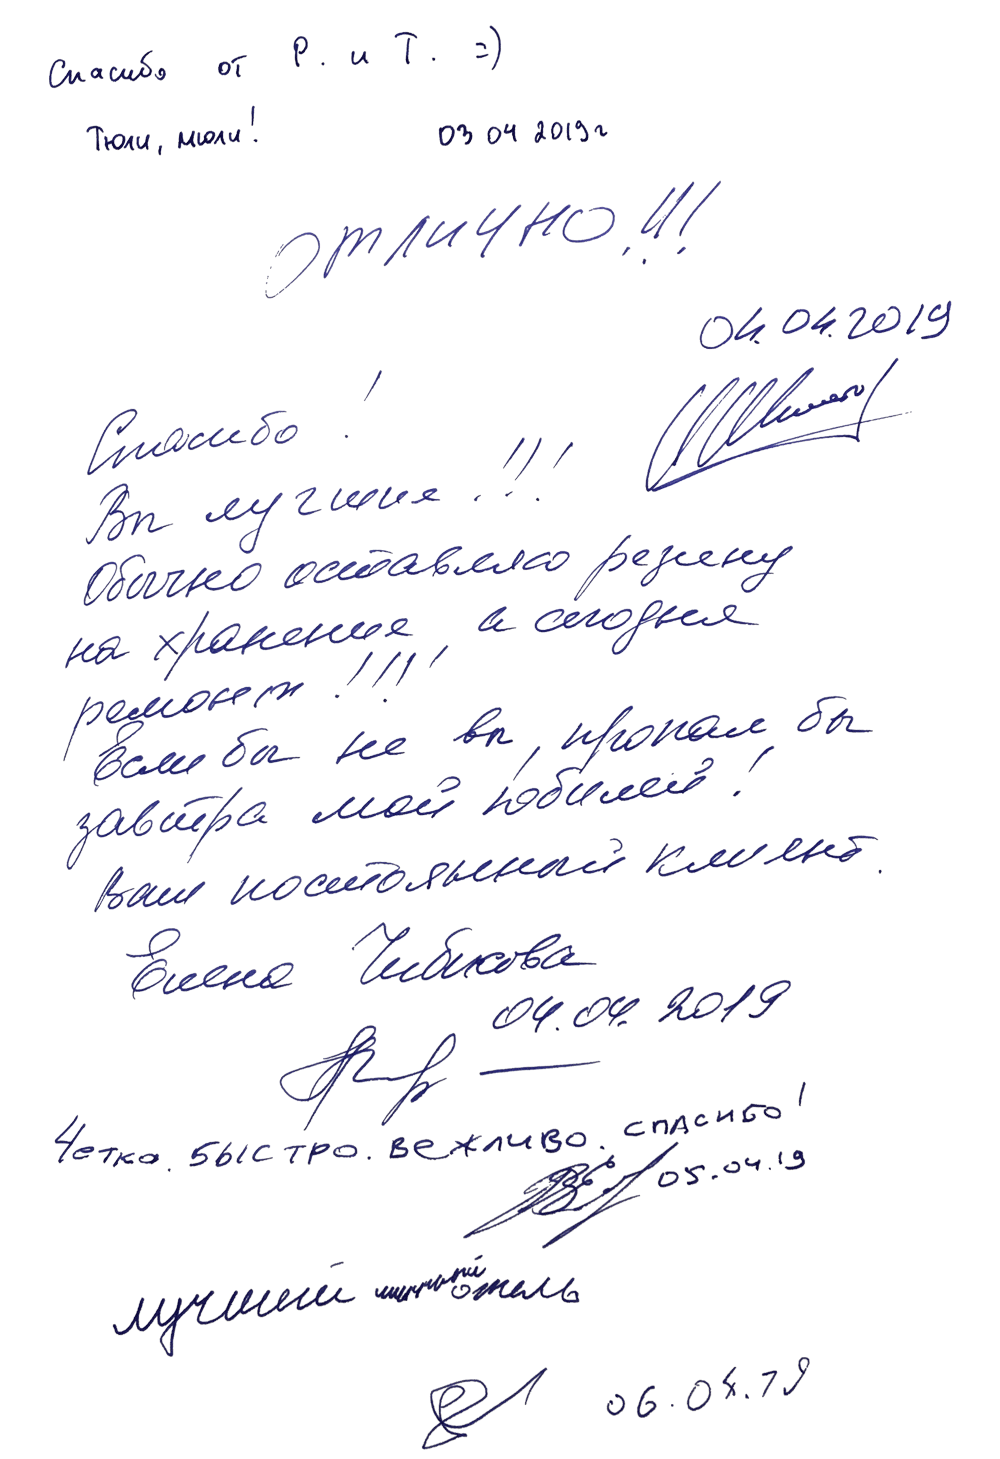 Спасибо от Р. и Т. =)
Тюли, мюли! 03 04 2019г
Отлично!!!
04.04.2019
Спасибо!
Вы лучшие!!!
Обычно оставляю резину
на хранение, а сегодня
ремонт!!!!
Если бы не вы, пропал бы
завтра мой юбилей!
Ваш постоянный клиент.
Елена Чибикова
04.04.2019
Четко. Быстро. Вежливо. Спасибо!
05.04.19
лучший отель
06.04.19